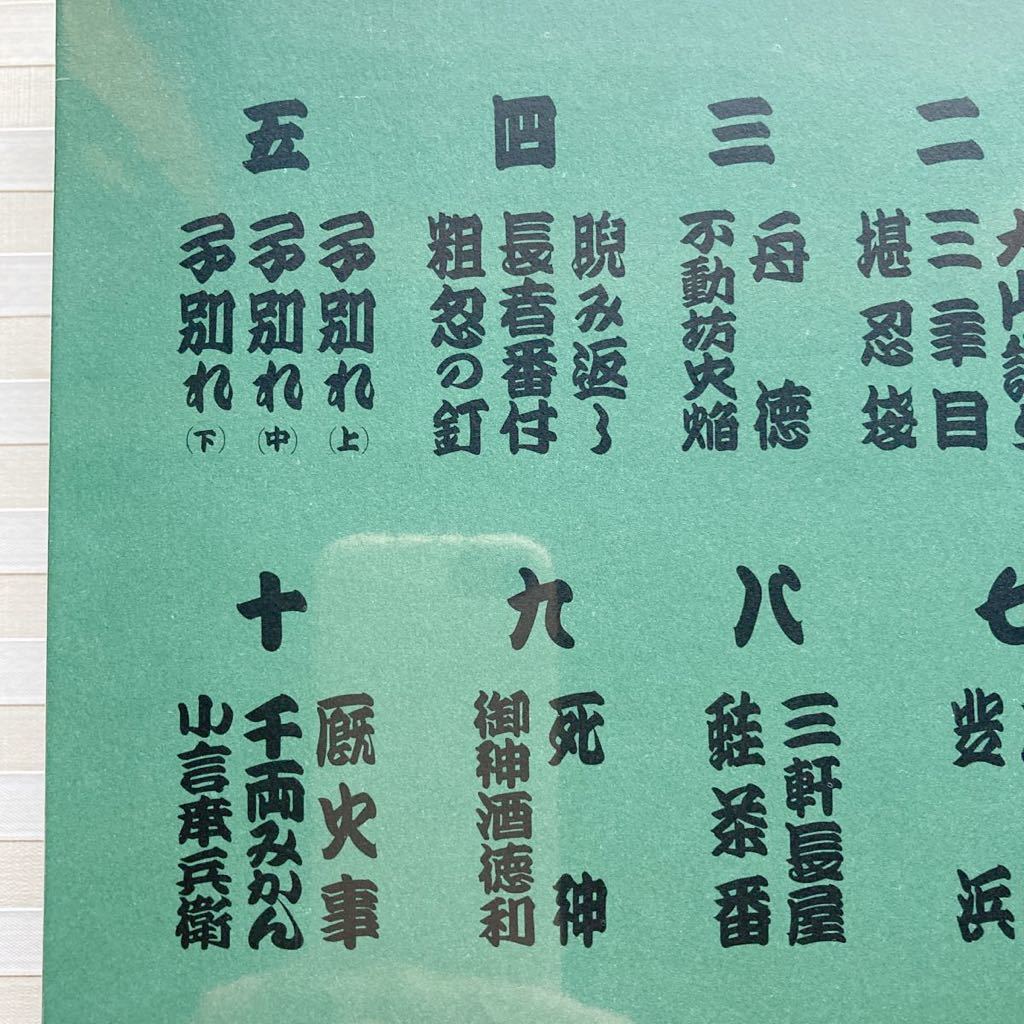 二
大山詣り
三年目
堪忍袋
三
舟徳
不動坊火焔
四
睨み返し
長者番付
粗忽の釘
五
子別れ(上)
子別れ(中)
子別れ(下)
七
芝浜
八
三軒長屋
蛙茶番
九
死神
御神酒徳利
十
厩火事
千両みかん
小言幸兵衛